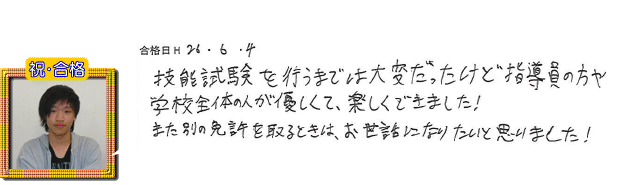 合格日 H 26 . 6 . 4
祝・合格
技能試験を行うまでは大変だったけど指導員の方や
学校全体の人が優しくて、楽しくできました!
また別の免許を取るときは、お世話になりたいと思いました!